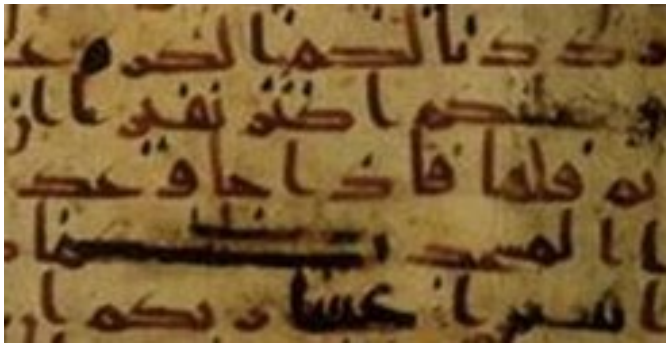 رددنا لكم الكره عل
وجعلنكم اكثر نفيرا ان
تم فلها فاذا جا وعد
ا المسجد كما د
ا تتبيرا عسا ربكم ان